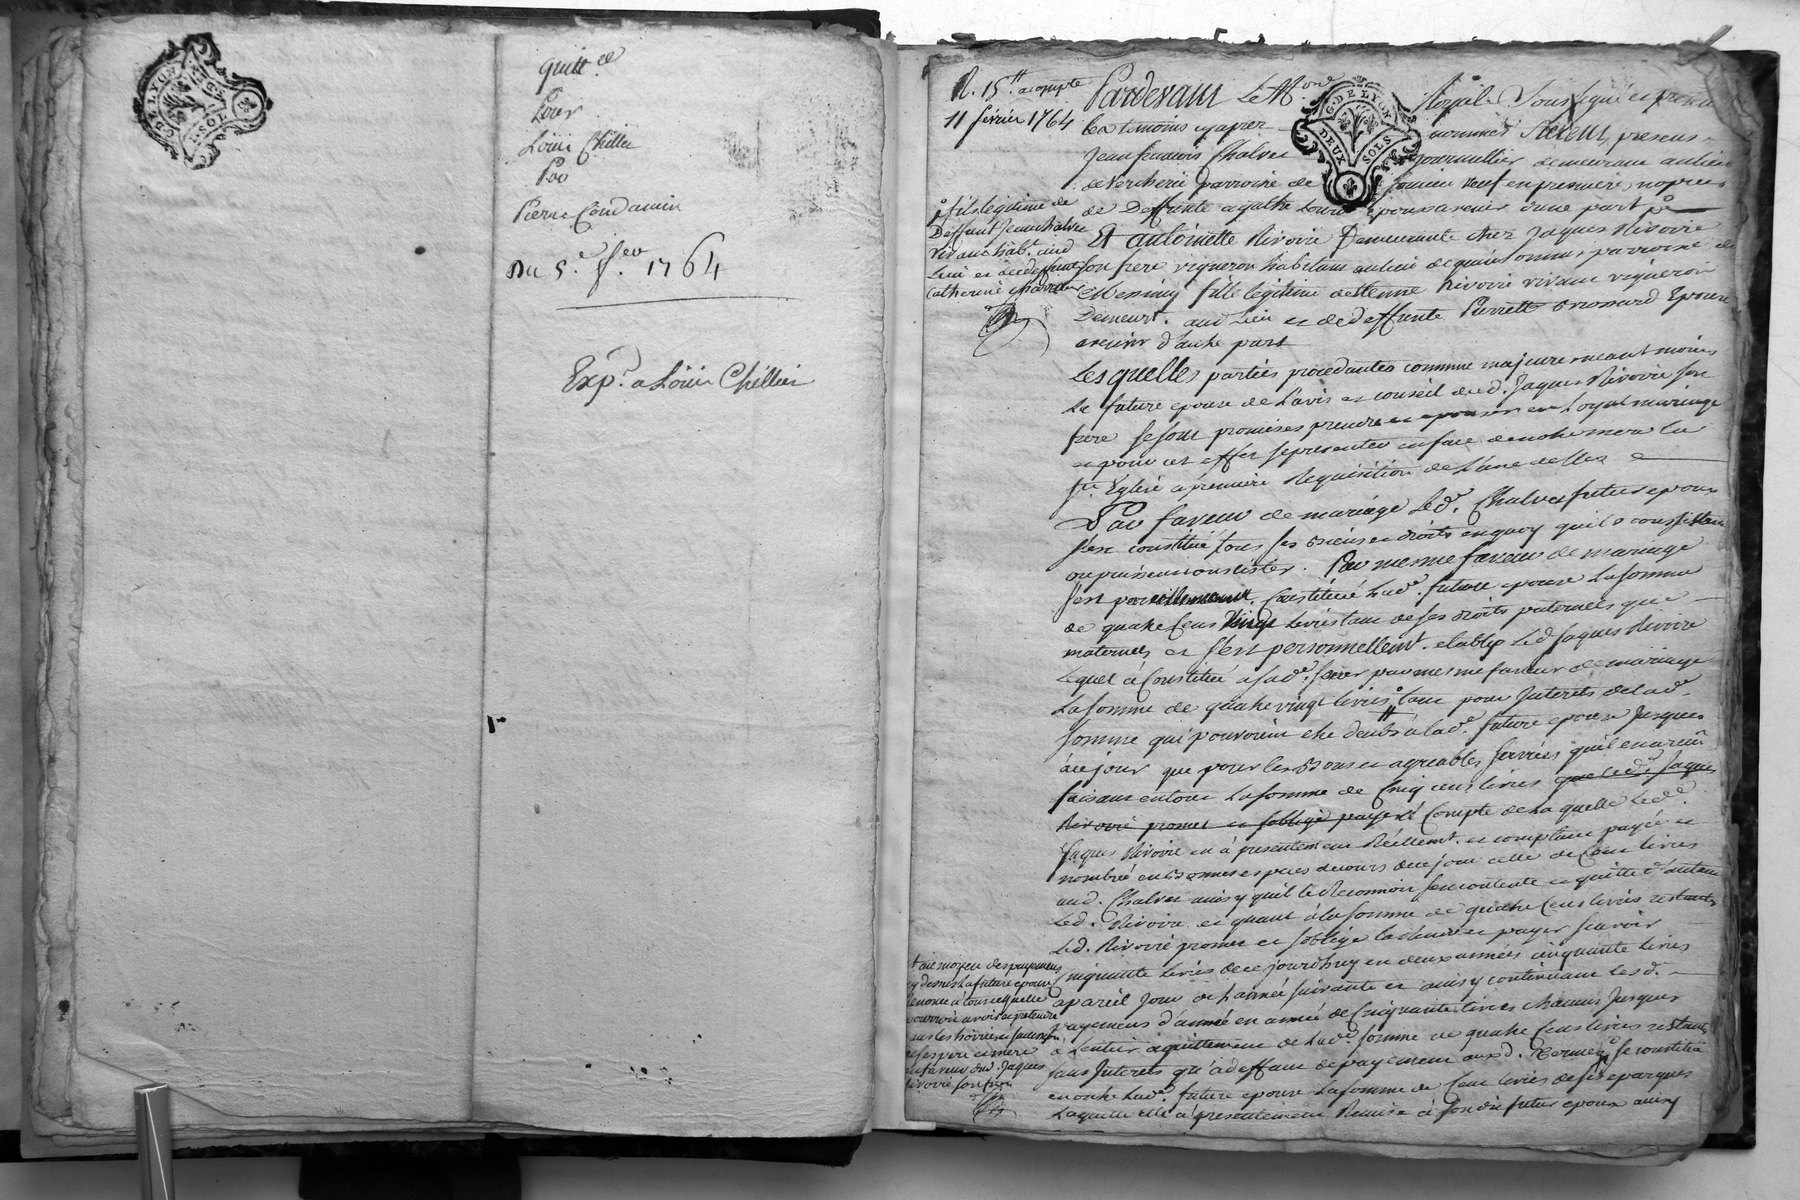 G. DE LYON
DEUX SOLS
quitt.ce
Pour
Louis Chillier
Par
Pierre Condamin
Du 5.e f.er 1764
Exp. a Louis Chillier
R. 15.tt acompte
11 février 1764
Pardevant Le Not.re Royal Soussigné et presens
les temoins cyapres nommés furent presens
Jean francois Chalvet journallier demeurant au lieu
de Vercherie parroisse de neuf en premieres nopces
de Deffunte agathe époux avenir d'une part
Et antoinette Rivoire Demeurante chez Jaques Rivoire
son frere vigneron habitant au lieu de parroisse de
Messimy fille legitime de Etienne Rivoire vivant vigneron
Demeur.t aud. Lieu et de deffunte Pierrette Brossard Epouse
avenir d'autre part
Les quelles parties procedantes comme majeures neantmoins
la future epouse de l'avis et conseil dud. Jaques Rivoire son
frere se sont promises prendre et epouser en Loyal mariage
et pour cet effet se presenter en face de notre mere la
ste Eglise a premiere Requisition de L'une d'elles
Par faveur de mariage Led. Chalvet futur epoux
s'est constitué tous ses biens et droits en quoy qu'ils consistent
ou puissent consister. Par mesme faveur de mariage
s'est pareillement Constitué lad.e future epouse La somme
de quatre Cens vingt Livres tant de ses droits paternels que
maternels et s'est personnellem.t etably Led. Jaques Rivoire
Lequel a Constitué a sad.e soeur par mesme faveur de mariage
La somme de quatre vingt livres tant pour Interets de lad.e
somme qui pouvoient etre deubs à lad.e future epouse Jusques
à ce jour que pour les Bons et agreables services qu'il en a receu
faisant en tout La somme de Cinq cens livres que led. Jaques
Rivoire promet et s'oblige payer à Compte de La quelle Led.
Jaques Rivoire en à presentement Réellem.t et comptant payée et
nombrée en Bonnes especes decours de ce jour celle de Cent livres
aud. Chalvet ainsy qu'il le Reconnoit s'en contente et quitte d'autant
Led. Rivoire et quant à la somme de quatre Cens livres restante
Led. Rivoire promet et s'oblige la luy payer scavoir
Cinquante livres de ce jourdhuy en deux années cinquante livres
apareil jour de l'année suivante et ainsy continuant Lesd.
payemens d'année en année de Cinquante livres chacun Jusques
à L'entier aquittement de Lad.e somme de quatre Cens livres restante
sans Interets qu'à deffaut de payement auxd. Termes se constitue
en outre Lad.e future epouse La somme de Cent livres de ses epargnes
Laquelle elle a presentement Remise à son dit futur epoux ainsy
fils legitime de
Deffunt Jean chalvet
vivant hab.t aud.
Lieu et de deffunte
Catherine
+ au moyen des payemens
cy dessus La future epouse
renonce à tout ce qu'elle
pourroit avoir et pretendre
sur les hoiries et succession
de ses pere et mere
en faveur dud. Jaques
Rivoire son frere